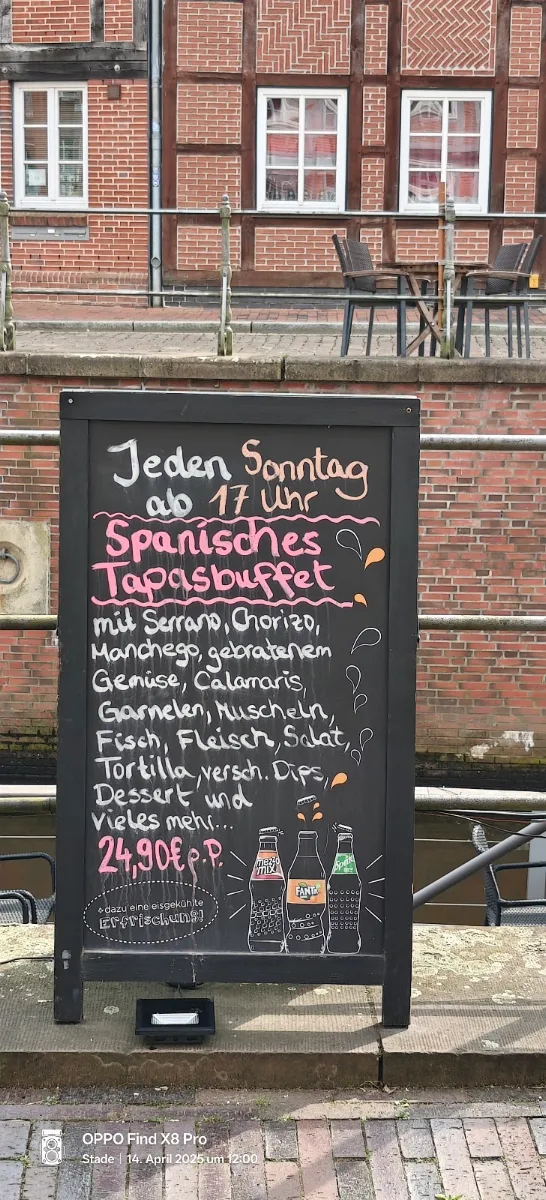 Jeden Sonntag
ab 17 Uhr
Spanisches
Tapasbuffet
mit Serrano, Chorizo,
Manchego, gebratenem
Gemüse, Calamaris,
Garnelen, Muscheln,
Fisch, Fleisch, Salat,
Tortilla, versch. Dips,
Dessert und
vieles mehr...
24,90€ p.P.
mezzo
mix
FANTA
Sprite
+dazu eine eisgekühlte
Erfrischung!
OPPO Find X8 Pro
Stade | 14. April 2025 um 12:00